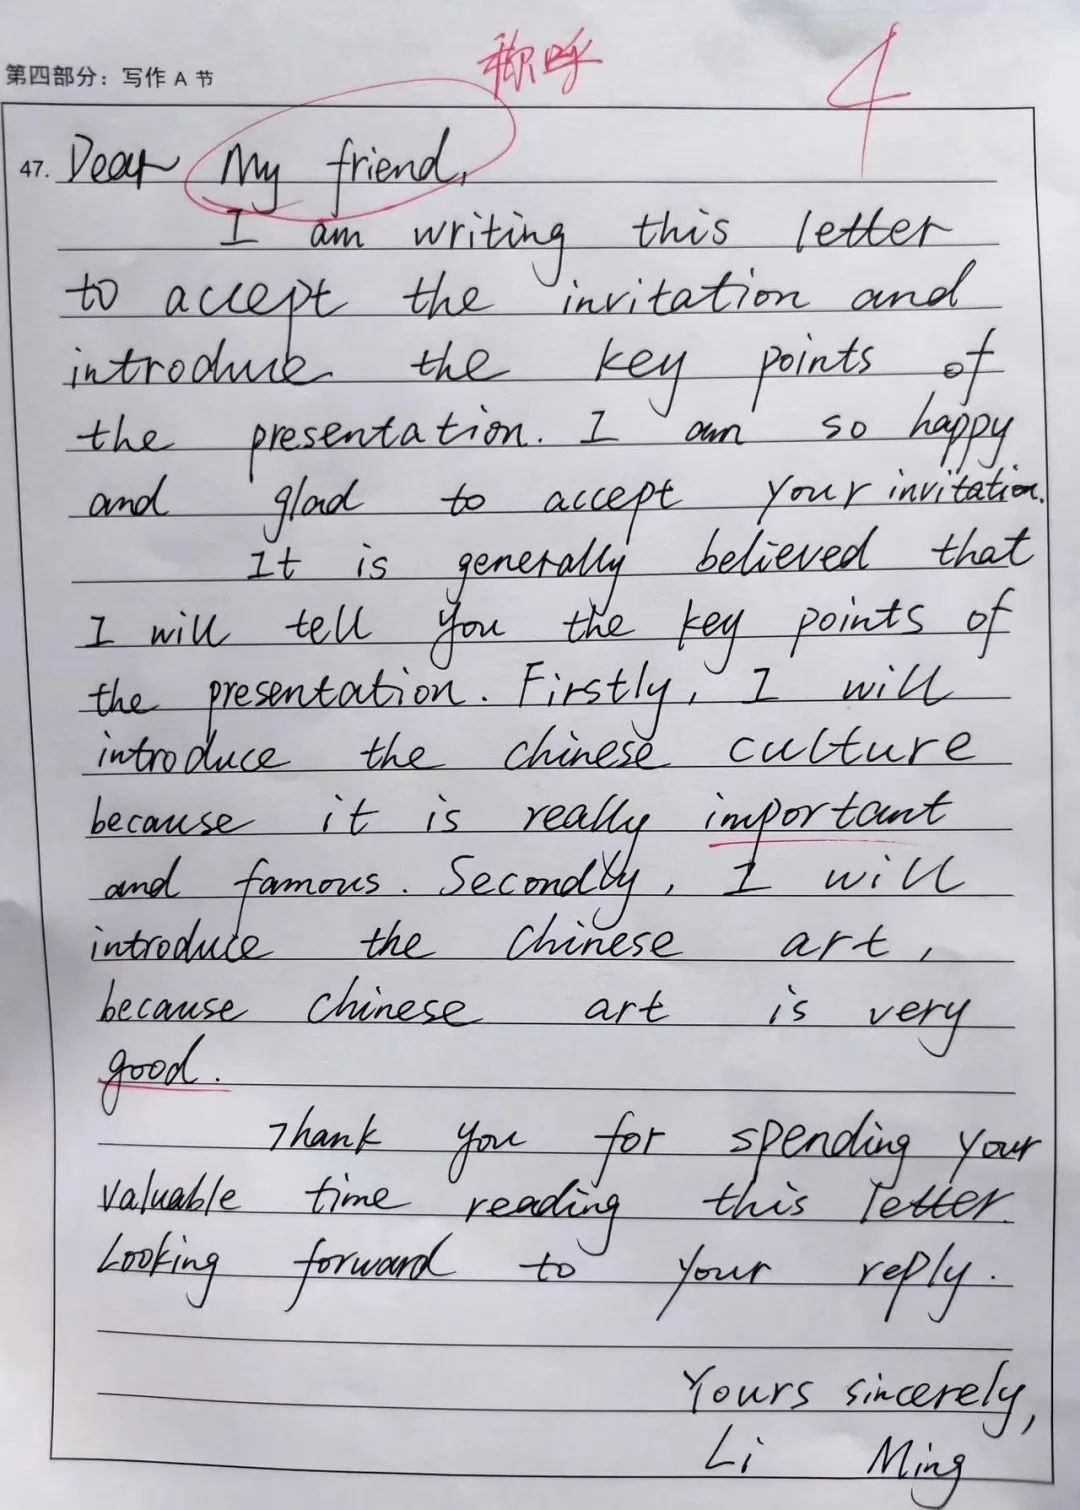 称呼
4
第四部分：写作 A 节
47. Dear My friend,
I am writing this letter
to accept the invitation and
introduce the key points of
the presentation. I am so happy
and glad to accept your invitation.
It is generally believed that
I will tell you the key points of
the presentation. Firstly, I will
introduce the chinese culture
because it is really important
and famous. Secondly, I will
introduce the chinese art,
because chinese art is very
good.
Thank you for spending your
valuable time reading this letter.
Looking forward to your reply.
Yours sincerely,
Li Ming